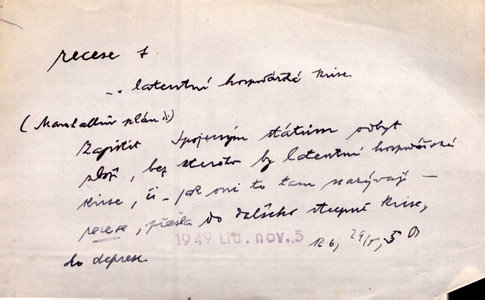 recese f
.. latentní hospodářská krise
(Marshallův plán:)
Zajistit Spojeným státům odbyt
zboží, bez kterého by latentní hospodářská
krise, či - jak oni to tam nazývají -
recese, přešla do dalšího stupně krise,
do deprese.
1949 Lid. nov. 5
12 6, 29/5, 5